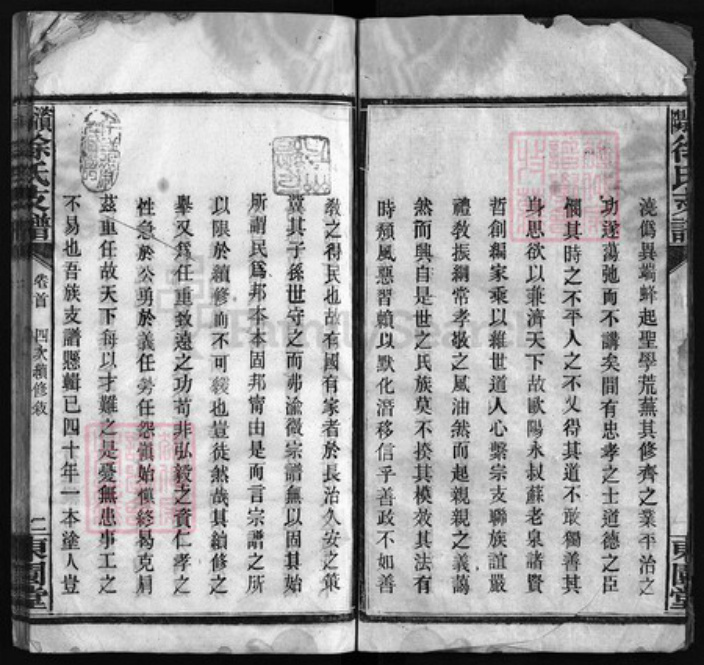 澆僞異端蜂起聖學荒蕪其修齊之業平治之
功遂蕩弛而不講矣間有忠孝之士道德之臣
憫其時之不平人之不乂得其道不敢獨善其
身思欲以兼濟天下故歐陽永叔蘇老泉諸賢
哲創編家乘以維世道人心繫宗支聯族誼嚴
禮教振綱常孝敬之風油然而起親親之義藹
然而興自是世之氏族莫不揆其模效其法有
時頹風惡習賴以默化潛移信乎善政不如善
教之得民也故有國有家者於長治久安之策
冀其子孫世守之而弗渝微宗譜無以固其始
所謂民爲邦本本固邦甯由是而言宗譜之所
以限於續修而不可緩也豈徒然哉其續修之
舉又爲任重致遠之功苟非弘毅之資仁孝之
性急於公勇於義任勞任怨嶺始慎終曷克肩
茲重任故天下每以才難之是憂無患事工之
不易也吾族支譜懸輯已四十年一本塗人豈
徐氏支譜
卷首
四次續修敘
二
東園堂
徐氏支譜
東園堂
FamilySearch